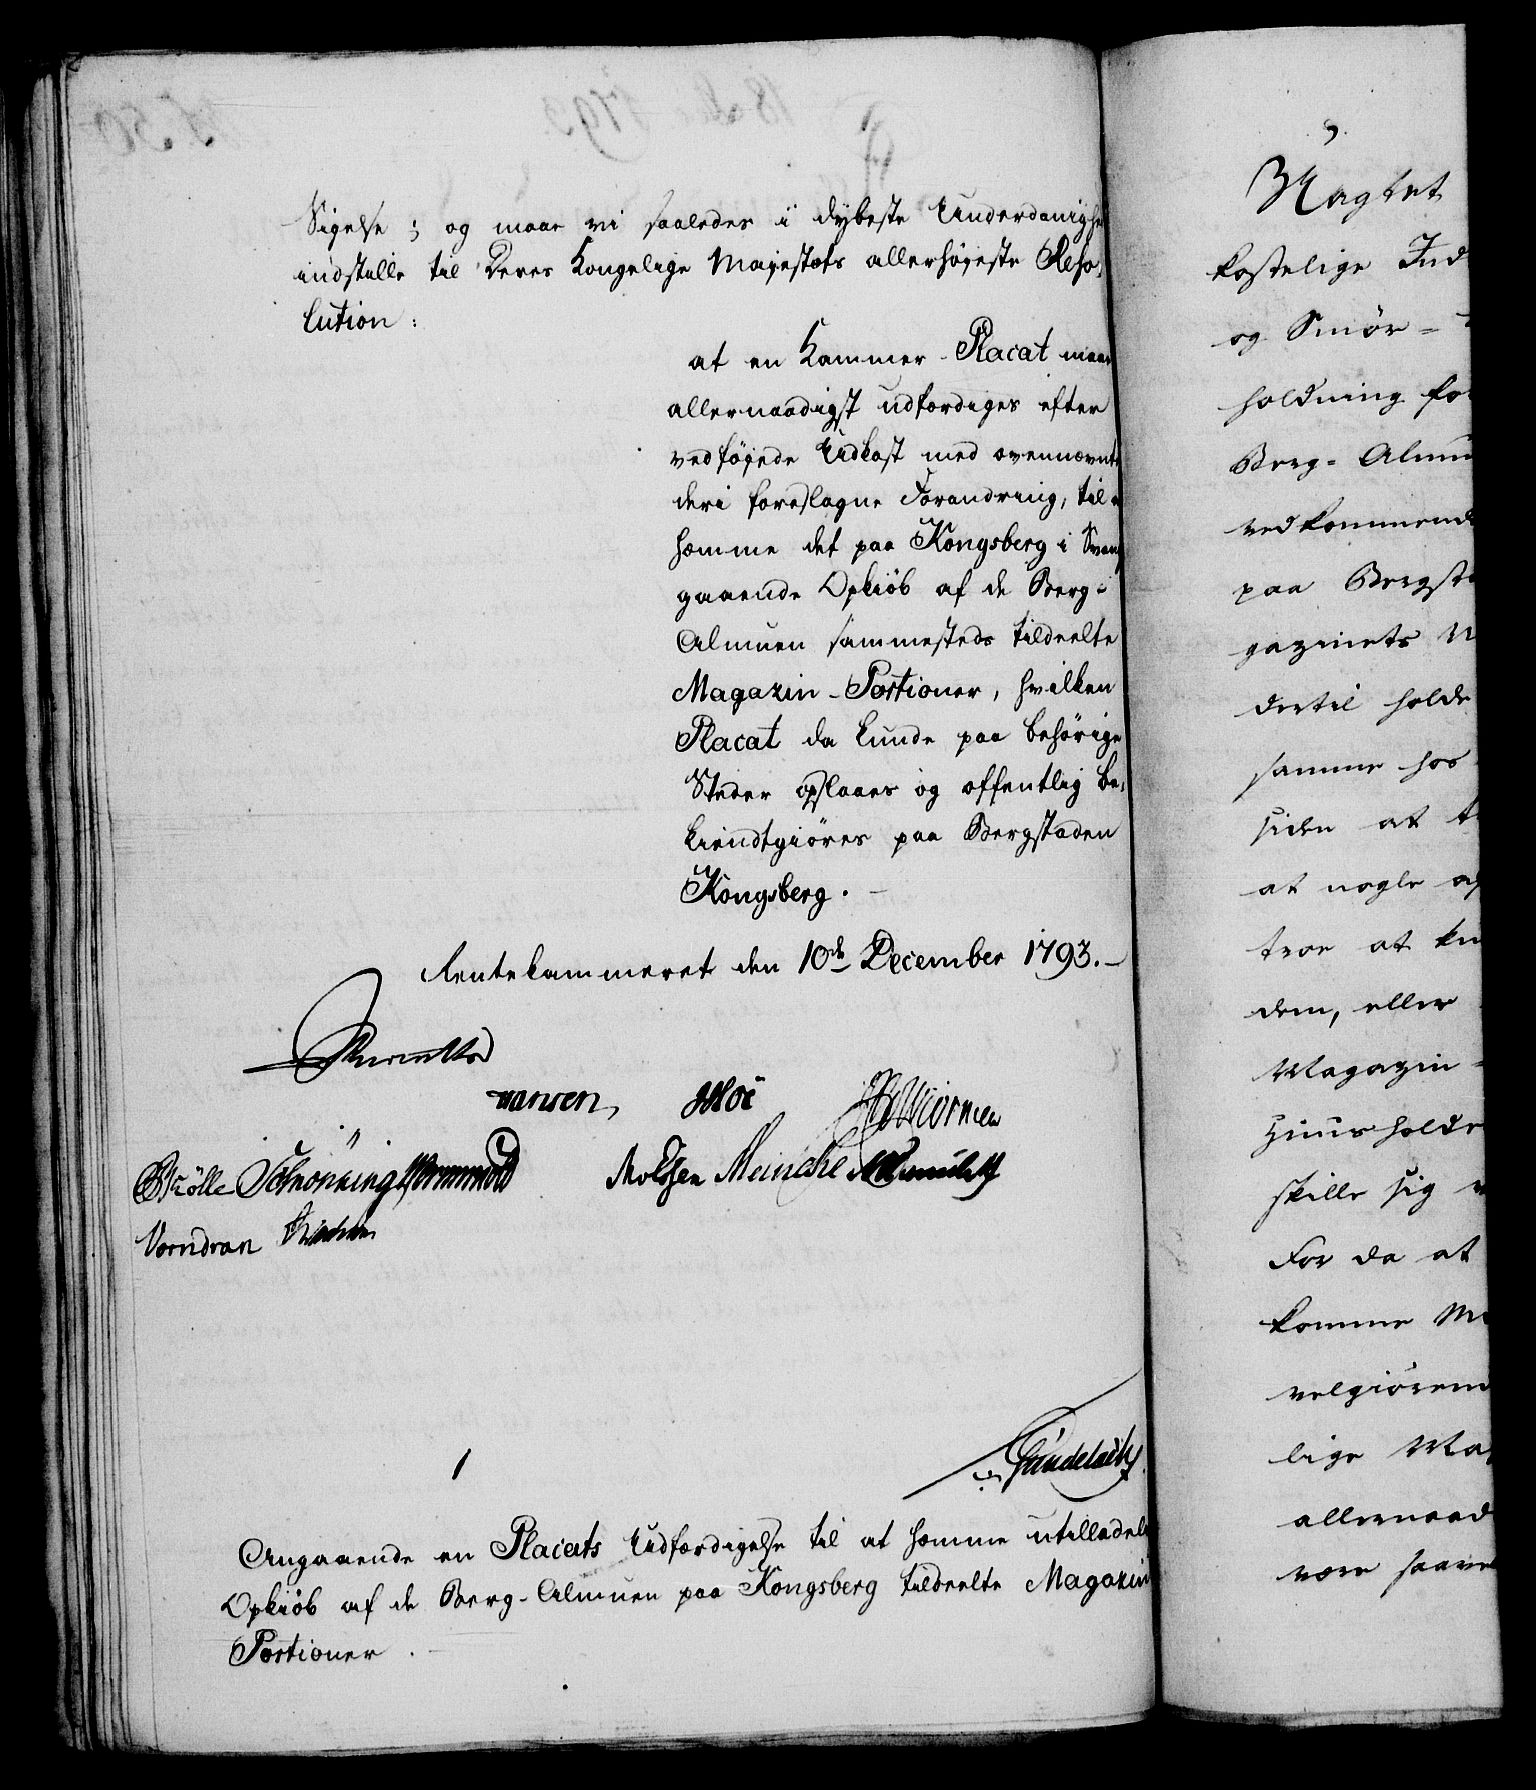 Sigelse; og maae vi saaledes i dybeste Underdanighe
indstille til Deres Kongelige Majestæts allerhøjeste Reso-
lution:
at en Kammer-Placat maae
allernaadigst udfærdiges efter
vedføjede Udkast med ovennævnte
deri foreslagne Forandring, til
hæmme det paa Kongsberg i Svang
gaaende Opkiøb af de Berg-
Almuen sammesteds tildeelte
Magazin-Portioner, hvilken
Placat da kunde paa behørige
Steder opslaaes og offentlig be-
kiendtgiøres paa Bergstaden
Kongsberg.
Rentekammeret den 10de December 1793.
Hansen
Schønning Wormskiold
Meinche
Vorndran
Gundelach
Angaaende en Placats Udfærdigelse til at hæmme utilladel
Opkiøb af de Berg-Almuen paa Kongsberg tildeelte Magazin
Portioner.
Magtet
kostelige Ind
og Smør-
holdning for
Berg-Almu
vedkommend
paa Bergsta
gazinets
dertil holde
samme hos
siden at
at nogle af
troe at
dem, eller
Magazin-
holde
skille sig
For da at
komme
velgiørend
lige Ma
allernaad
være saavel